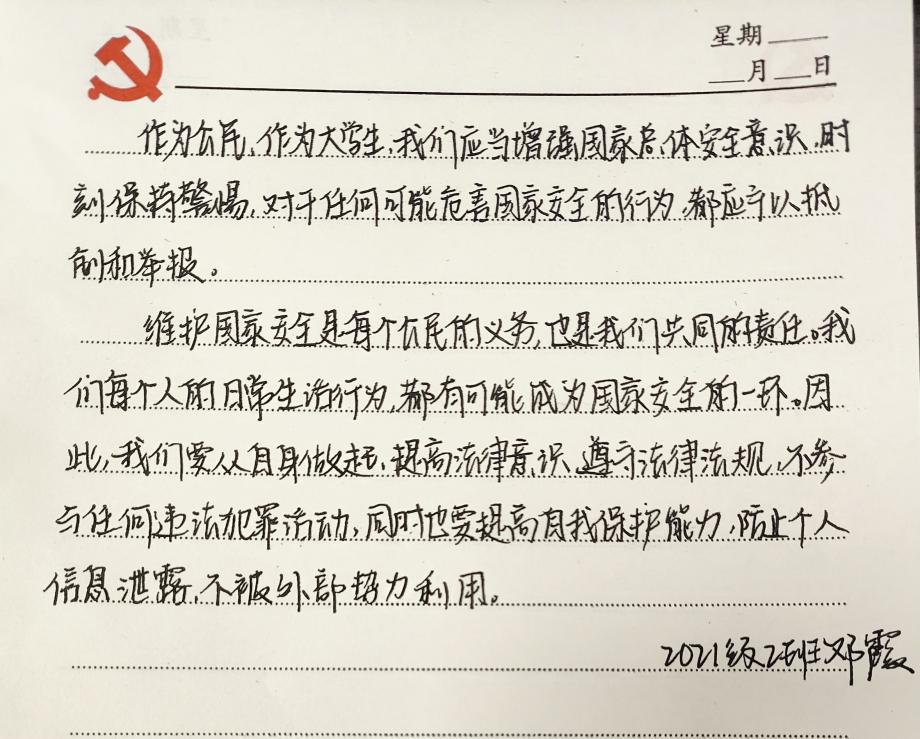 星期
月 日
作为公民、作为大学生,我们应当增强国家总体安全意识,时
刻保持警惕,对于任何可能危害国家安全的行为,都应予以抵
制和举报。
维护国家安全是每个公民的义务,也是我们共同的责任。我
们每个人的日常生活行为,都有可能成为国家安全的一环。因
此,我们要从自身做起,提高法律意识、遵守法律法规,不参
与任何违法犯罪活动,同时也要提高自我保护能力,防止个人
信息泄露,不被外部势力利用。
2021级2班邓霞